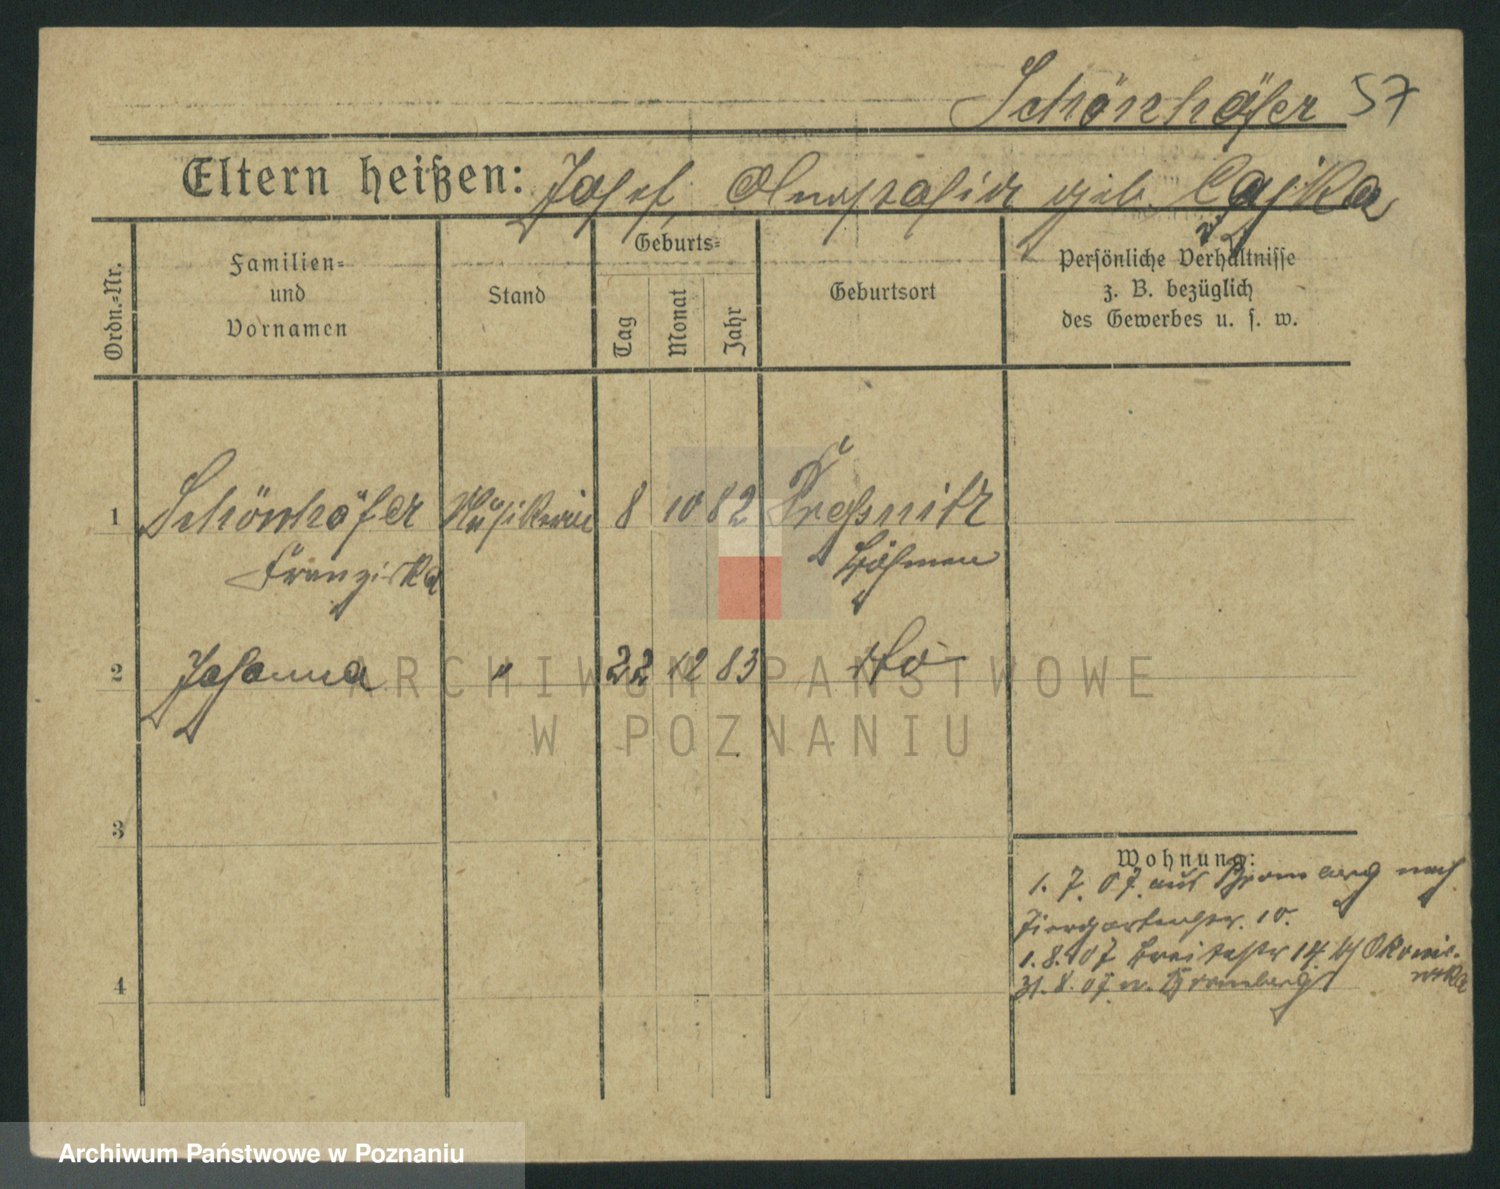 Schönhöfer 57
Eltern heißen: Josef, Anastasia geb. Cajka
Ordn.-Nr.
Familien-
und
Vornamen
Stand
Geburts-
Tag
Monat
Jahr
Geburtsort
Persönliche Verhältnisse
z. B. bezüglich
des Gewerbes u. s. w.
1 Schönhöfer Musikerin 8 10 82 Pressnitz
Franziska Böhmen
2 Johanna " 22 12 83 dto
ARCHIWUM PAŃSTWOWE
W POZNANIU
3
Wohnung:
1. 7. 07 aus Bromberg nach
Tiergartenstr. 10.
1. 8. 07 Breitestr 14
4
31. 8. 07 n. Bromberg
Archiwum Państwowe w Poznaniu